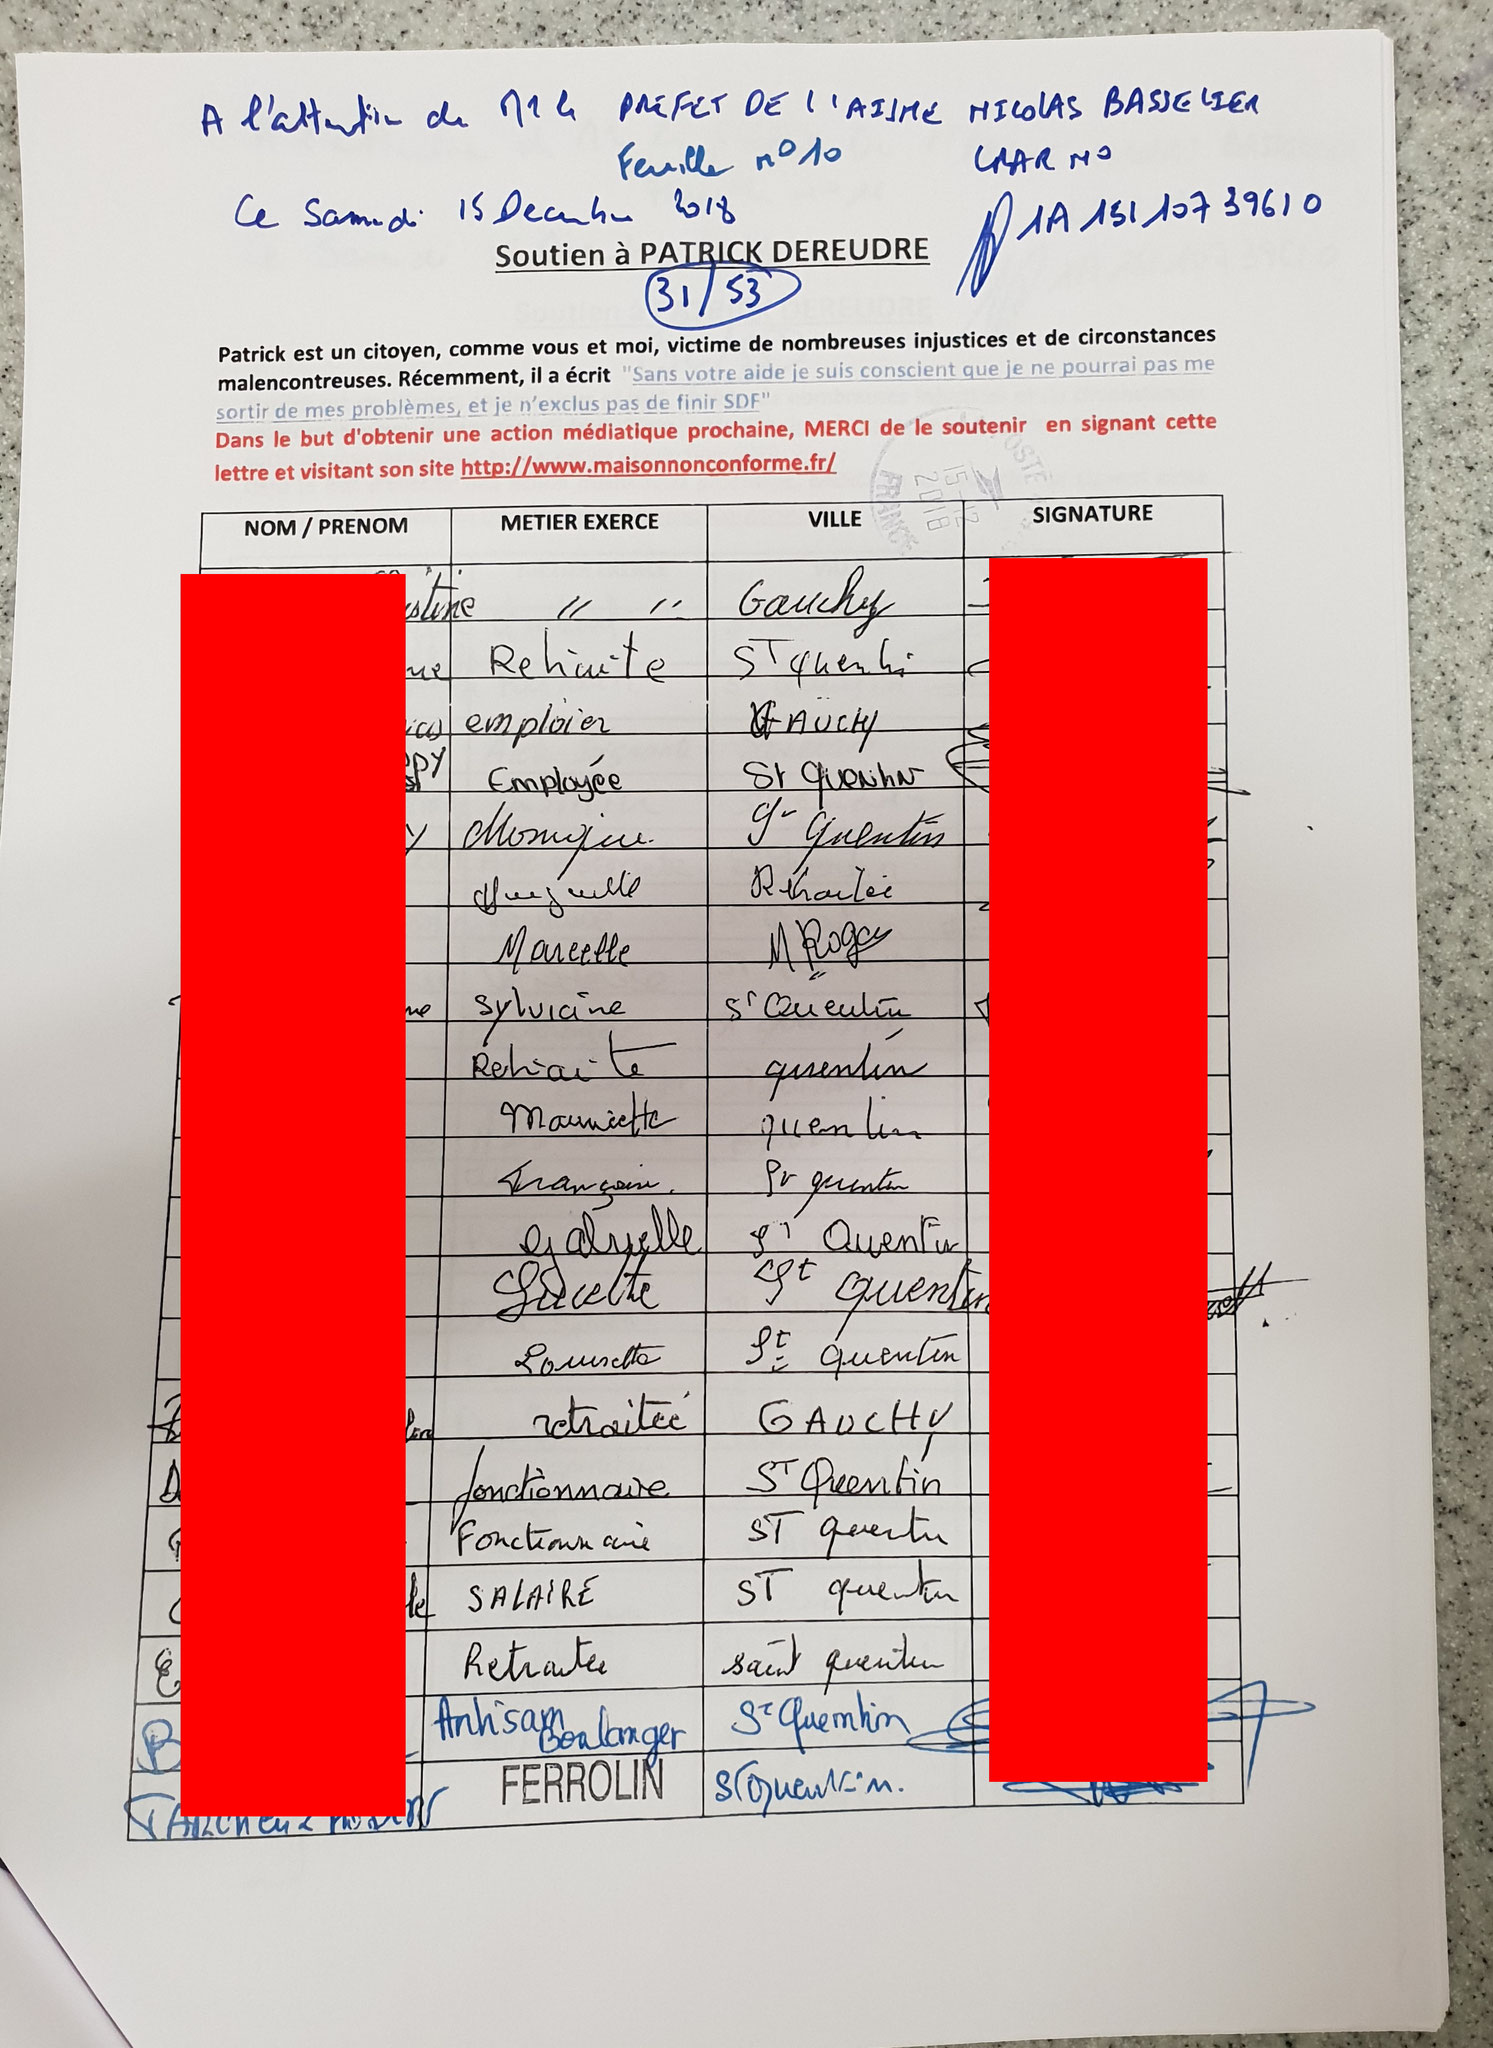 A l'attention de Mr le PREFET DE L'AISNE NICOLAS BASSELIER
Feuille n° 10 LRAR N°
Ce Samedi 15 Decembre 2018 1A 151 107 3961 0
Soutien à PATRICK DEREUDRE
31/53
Patrick est un citoyen, comme vous et moi, victime de nombreuses injustices et de circonstances
malencontreuses. Récemment, il a écrit "Sans votre aide je suis conscient que je ne pourrai pas me
sortir de mes problèmes, et je n'exclus pas de finir SDF"
Dans le but d'obtenir une action médiatique prochaine, MERCI de le soutenir en signant cette
lettre et visitant son site http://www.maisonnonconforme.fr/
POSTE
15-12
2018
FRANCE
NOM / PRENOM METIER EXERCE VILLE SIGNATURE
stine // // Gauchy
Retraite ST quentin
emploier GAUCHY
PPY Employée St Quentin
Y Monique St Quentin
Huguette Retraitée
Marcelle M Roger
ne Sylviane St Quentin
Retraite quentin
Mauricette quentin
Françoise St quentin
Gabryelle St Quentin
Lucette St quentin
Lousette St quentin
retraiteé GAUCHY
D fonctionnaire ST Quentin
Fonctionnaire ST quentin
le SALAIRE ST quentin
E Retraitee saint quentin
B Artisam Boulanger St Quentin
FERROLIN St Quentin.